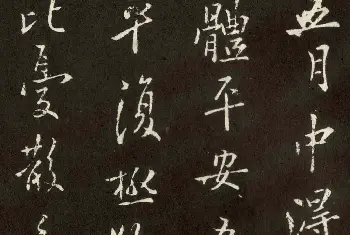 五月中得
體平安
平復
比憂散